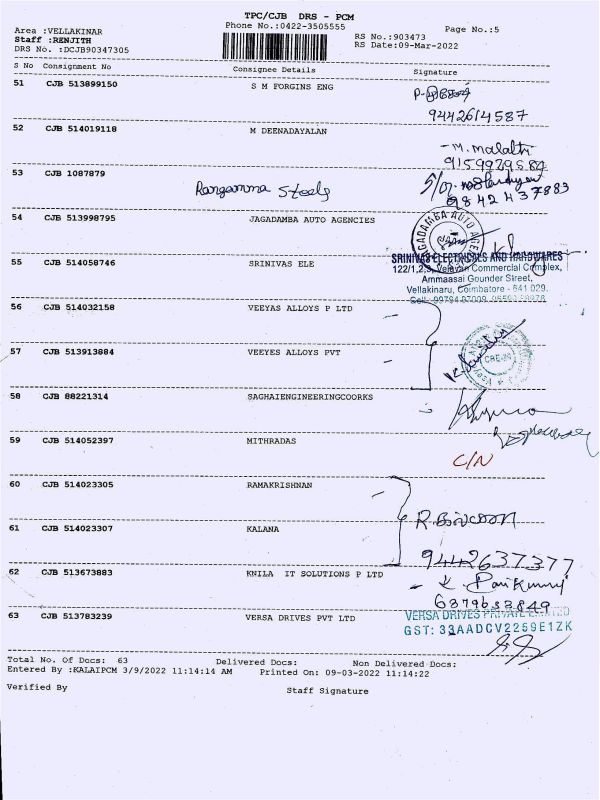 TPC/CJB DRS - PCM
Phone No.:0422-3505555
Page No.:5
Area :VELLAKINAR
Staff :RENJITH
DRS No. :DCJB90347305
RS No.:903473
RS Date:09-Mar-2022
S No Consignment No Consignee Details Signature
51 CJB 513899150 S M FORGINS ENG
9442614587
52 CJB 514019118 M DEENADAYALAN
- M. Malathi
9159929584
53 CJB 1087879 Rangamma Steels
9842437883
54 CJB 513998795 JAGADAMBA AUTO AGENCIES
JAGADAMBA AUTO AGEN
55 CJB 514058746 SRINIVAS ELE
SRINIVAS ELECTRICALS AND HARDWARES
122/1,2,3, Velavan Commercial Complex,
Ammaasai Gounder Street,
Vellakinaru, Coimbatore - 641 029.
56 CJB 514032158 VEEYAS ALLOYS P LTD
57 CJB 513913884 VEEYES ALLOYS PVT
58 CJB 88221314 SAGHAIENGINEERINGCOORKS
59 CJB 514052397 MITHRADAS
C/N
60 CJB 514023305 RAMAKRISHNAN
61 CJB 514023307 KALANA
9442637377
62 CJB 513673883 KNILA IT SOLUTIONS P LTD
6379633849
63 CJB 513783239 VERSA DRIVES PVT LTD
VERSA DRIVES PRIVATE LIMITED
GST: 33AADCV2259E1ZK
Total No. Of Docs: 63 Delivered Docs: Non Delivered Docs:
Entered By :KALAIPCM 3/9/2022 11:14:14 AM Printed On: 09-03-2022 11:14:22
Verified By Staff Signature